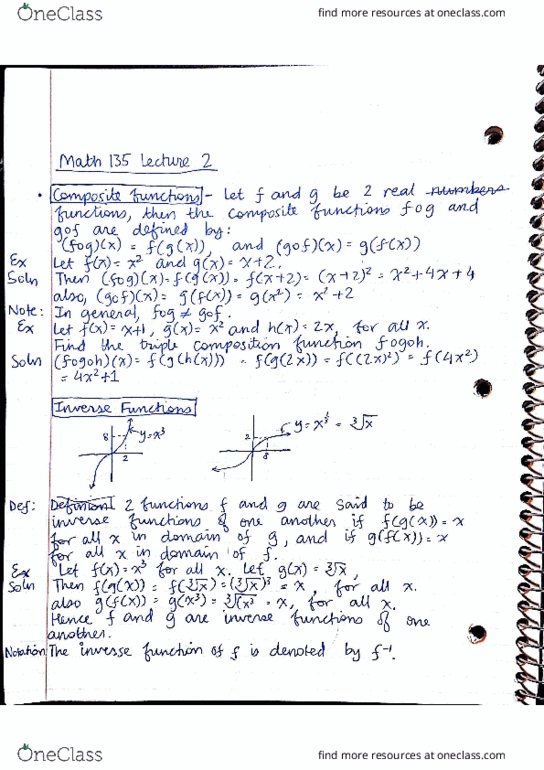 OneClass
find more resources at oneclass.com
Math 135 Lecture 2
• Composite functions - Let f and g be 2 real numbers
functions, then the composite functions fog and
gof are defined by:
(fog)(x) = f(g(x)), and (gof)(x) = g(f(x))
Ex Let f(x) = x² and g(x) = x+2.
Soln Then (fog)(x) = f(g(x)) = f(x+2) = (x+2)² = x²+4x+4
also, (gof)(x) = g(f(x)) = g(x²) = x²+2
Note: In general, fog ≠ gof.
Ex Let f(x) = x+1, g(x) = x² and h(x) = 2x, for all x.
Find the triple composition function fogoh.
Soln (fogoh)(x) = f(g(h(x))) = f(g(2x)) = f((2x)²) = f(4x²)
= 4x²+1
Inverse Functions
8 y=x³
2
y = x^⅓ = ∛x
2
8
Def: Definition 2 functions f and g are said to be
inverse functions of one another if f(g(x)) = x
for all x in domain of g, and if g(f(x)) = x
for all x in domain of f.
Ex Let f(x) = x³ for all x. Let g(x) = ∛x,
Soln Then f(g(x)) = f(∛x) = (∛x)³ = x, for all x.
also g(f(x)) = g(x³) = ∛(x³ = x, for all x.
Hence f and g are inverse functions of one
another.
Notation: The inverse function of f is denoted by f⁻¹.
OneClass
find more resources at oneclass.com